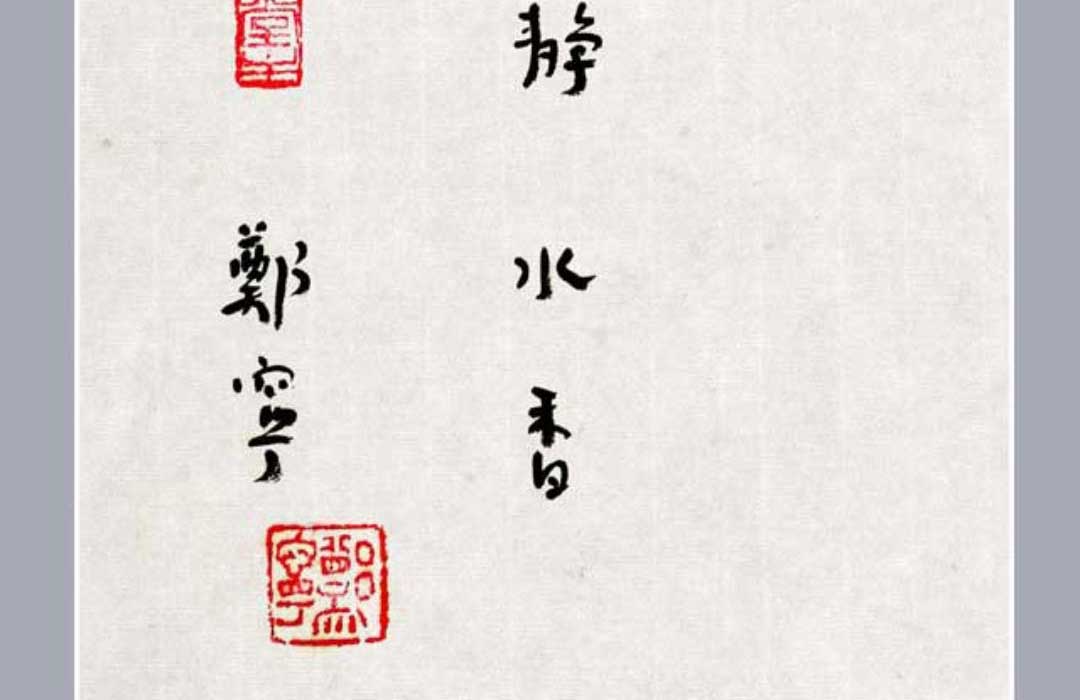 静水香
鄭寧
鄭寧